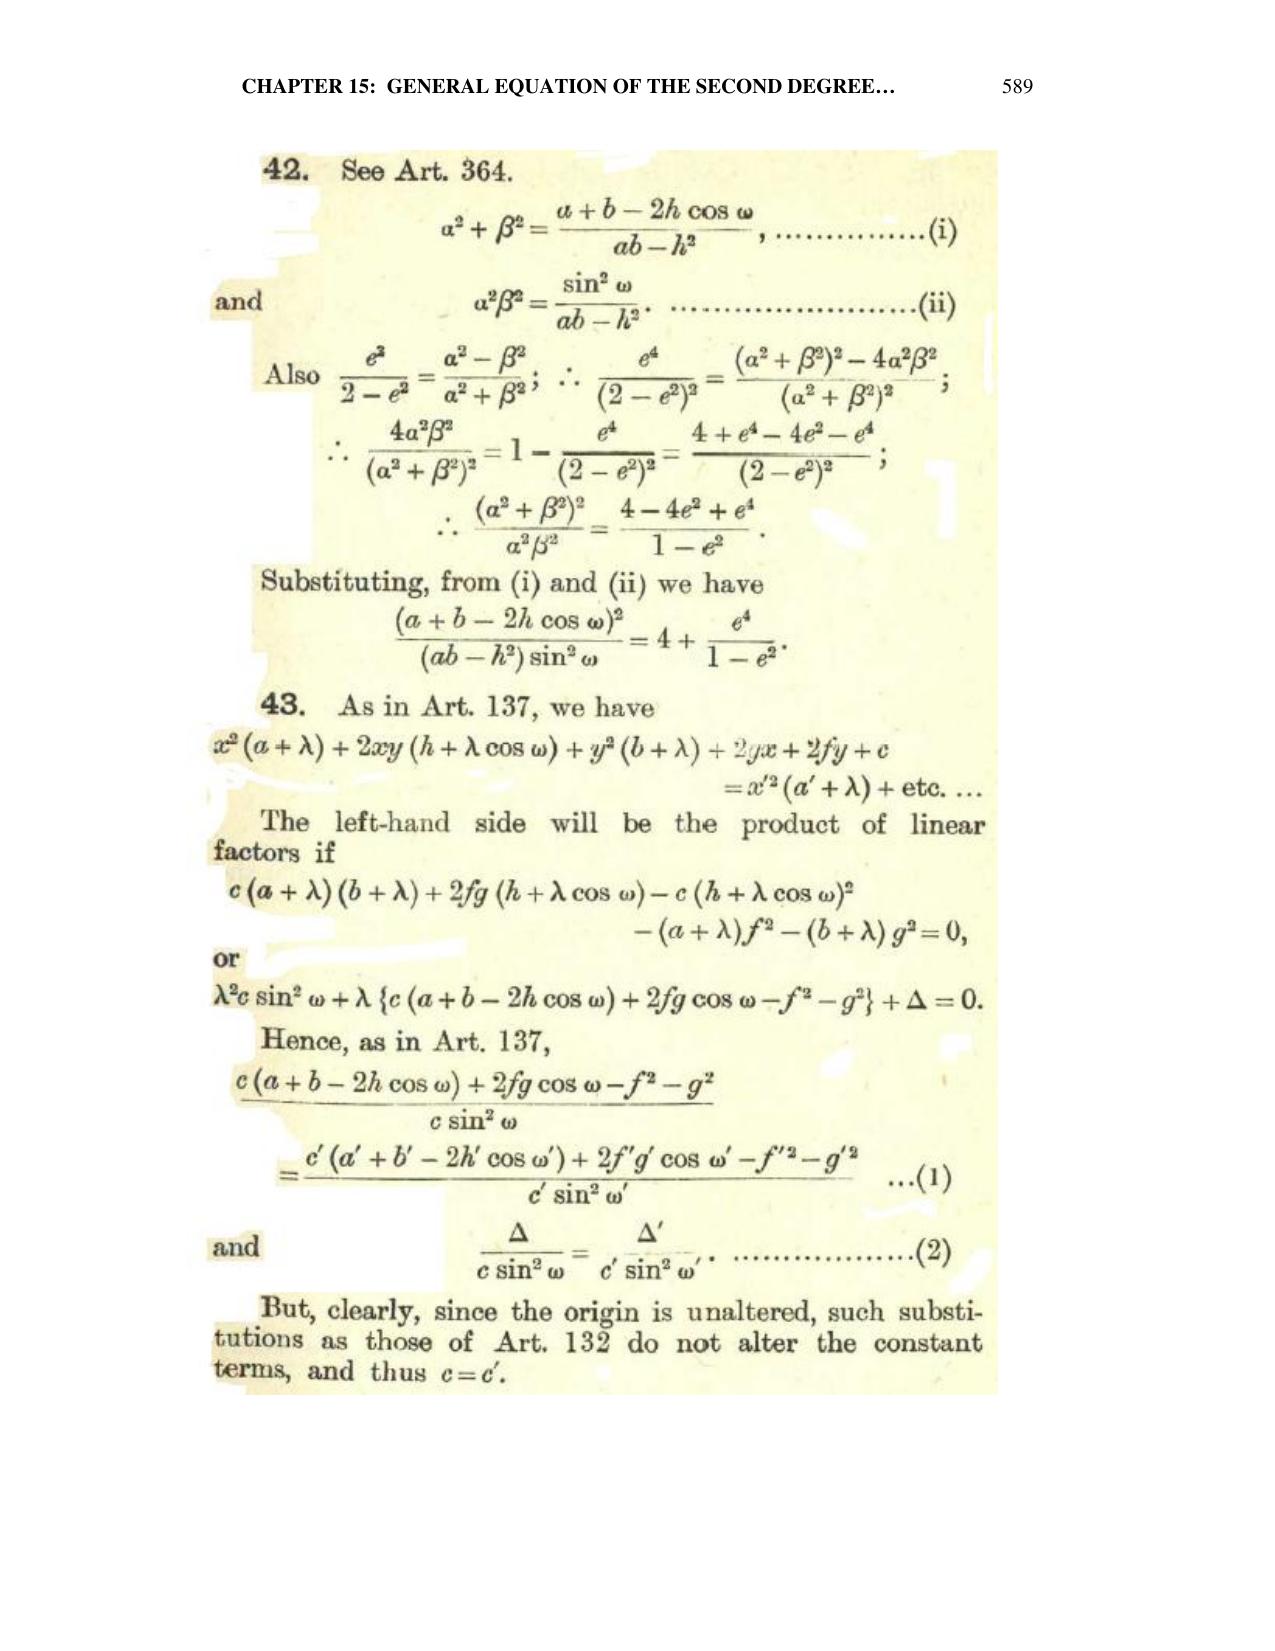 CHAPTER 15: GENERAL EQUATION OF THE SECOND DEGREE… 589
42. See Art. 364.
α² + β² = (a + b − 2h cos ω) / (ab − h²), ...............(i)
and α²β² = sin² ω / (ab − h²). .........................(ii)
Also e² / (2 − e²) = (α² − β²) / (α² + β²); ∴ e⁴ / (2 − e²)² = ((α² + β²)² − 4α²β²) / (α² + β²)²;
∴ 4α²β² / (α² + β²)² = 1 − e⁴ / (2 − e²)² = (4 + e⁴ − 4e² − e⁴) / (2 − e²)²;
∴ (α² + β²)² / α²β² = (4 − 4e² + e⁴) / (1 − e²).
Substituting, from (i) and (ii) we have
(a + b − 2h cos ω)² / ((ab − h²) sin² ω) = 4 + e⁴ / (1 − e²).
43. As in Art. 137, we have
x² (a + λ) + 2xy (h + λ cos ω) + y² (b + λ) + 2gx + 2fy + c
= x′² (a′ + λ) + etc. ...
The left-hand side will be the product of linear
factors if
c (a + λ) (b + λ) + 2fg (h + λ cos ω) − c (h + λ cos ω)²
− (a + λ) f² − (b + λ) g² = 0,
or
λ²c sin² ω + λ {c (a + b − 2h cos ω) + 2fg cos ω − f² − g²} + Δ = 0.
Hence, as in Art. 137,
(c (a + b − 2h cos ω) + 2fg cos ω − f² − g²) / (c sin² ω)
= (c′ (a′ + b′ − 2h′ cos ω′) + 2f′g′ cos ω′ − f′² − g′²) / (c′ sin² ω′) ...(1)
and Δ / (c sin² ω) = Δ′ / (c′ sin² ω′). ..................(2)
But, clearly, since the origin is unaltered, such substi-
tutions as those of Art. 132 do not alter the constant
terms, and thus c = c′.